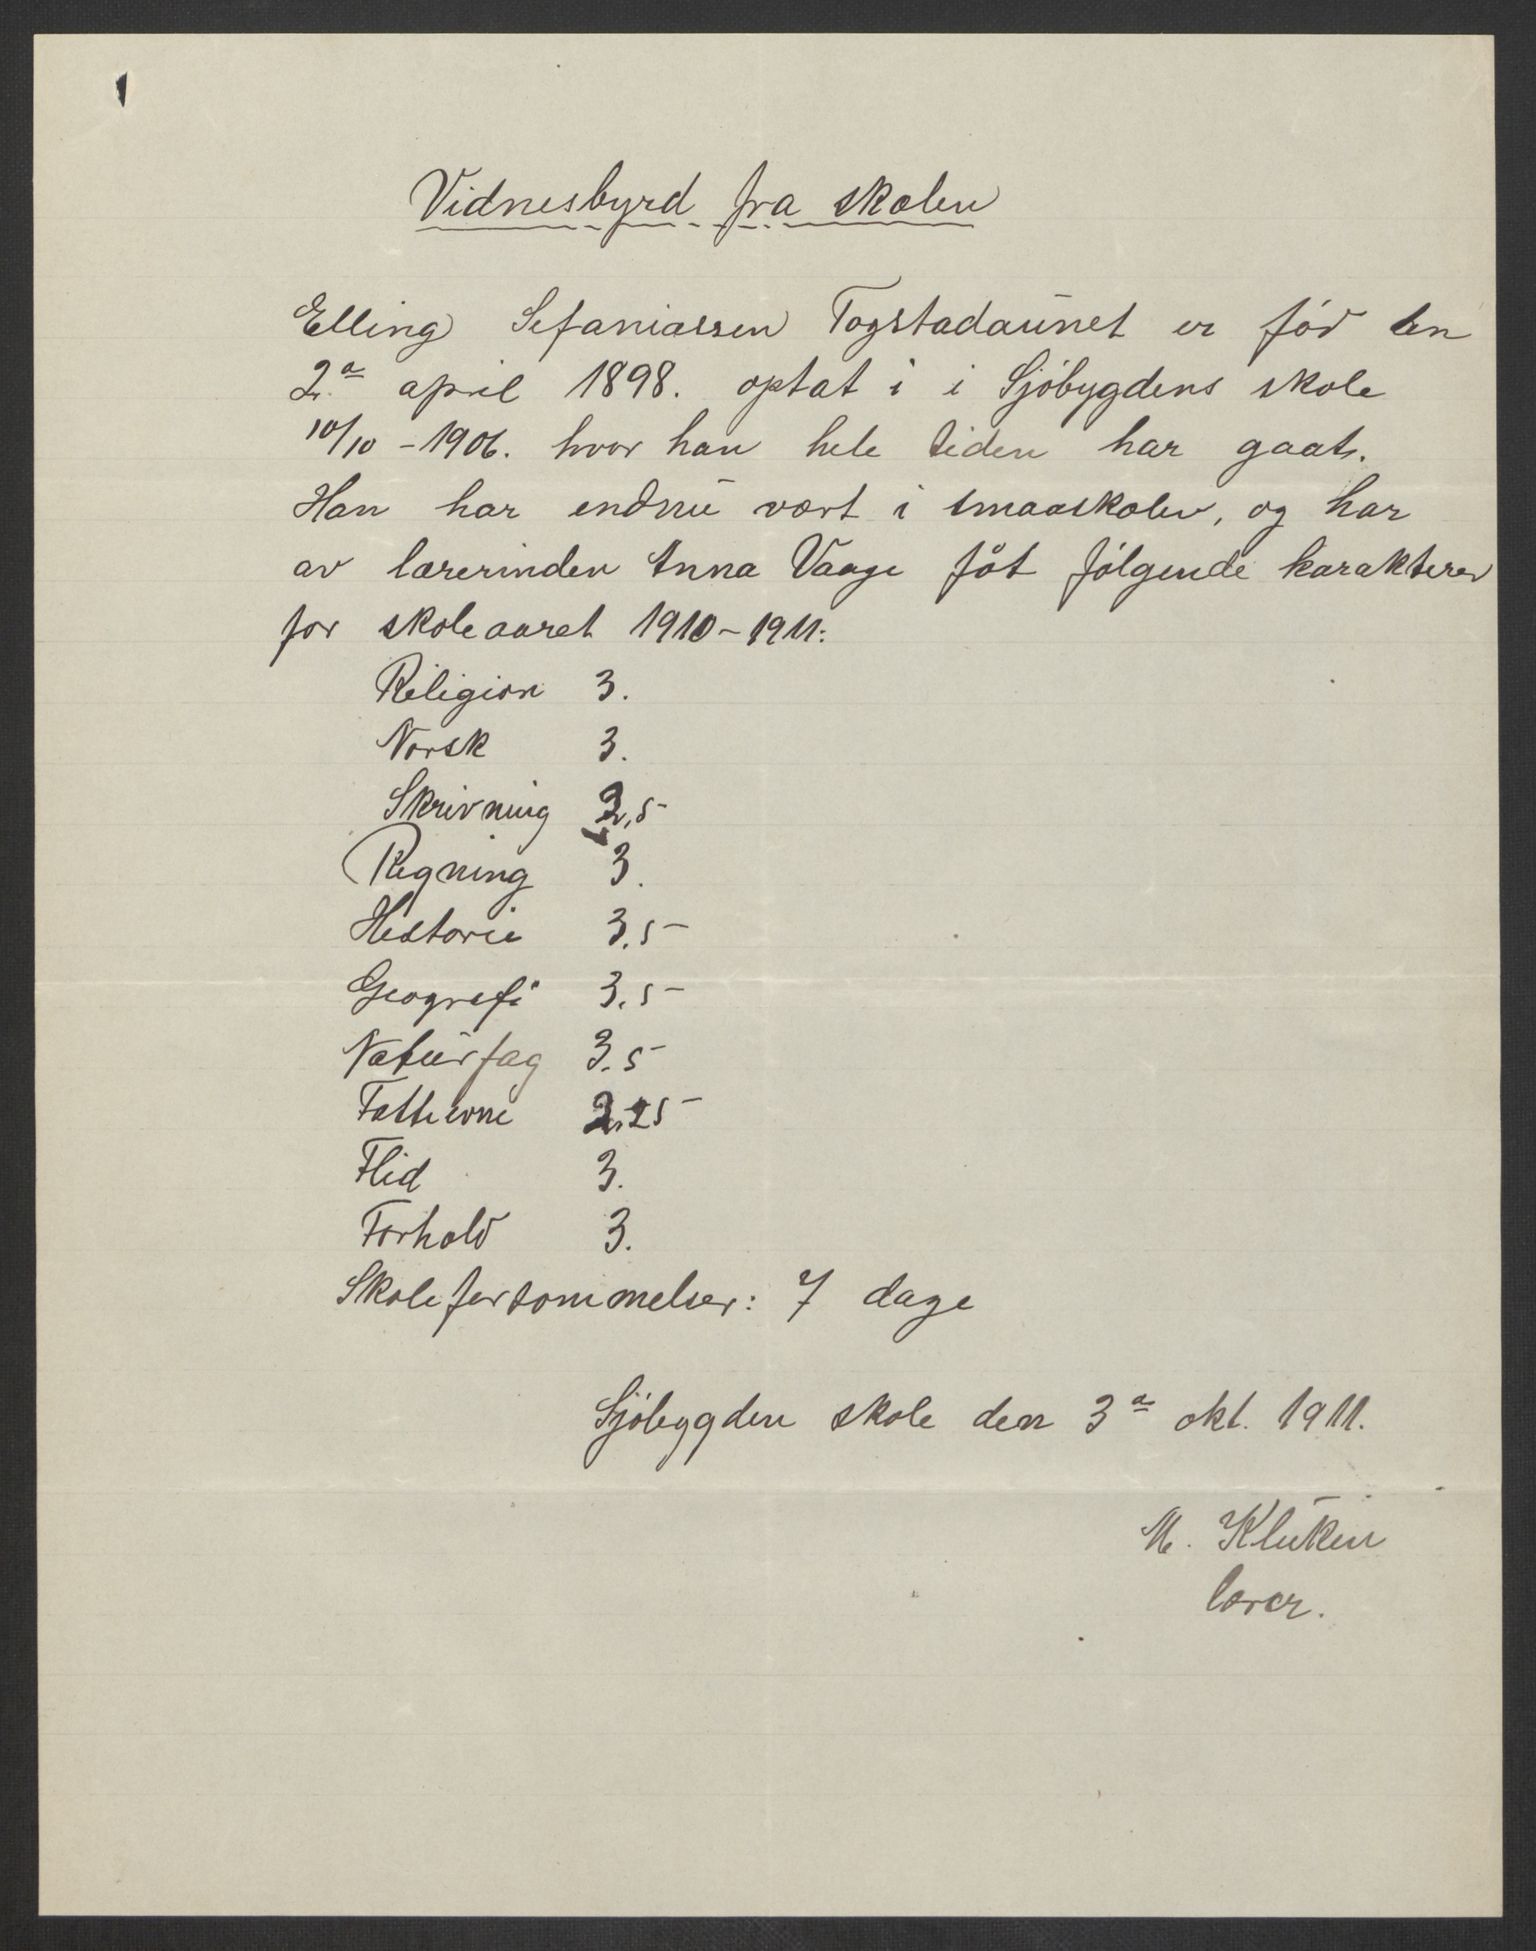 Vidnesbyrd fra skolen
Elling Sefaniassen Togstadaunet er föd den
2n april 1898. optat i i Sjöbygdens skole
10/10 - 1906. hvor han hele tiden har gaat.
Han har endnu vært i smaaskolen, og har
av lærerinden Anna Vaage föt fölgende karakterer
for skoleaaret 1910-1911:
Religion 3.
Norsk 3.
Skrivning 2,5
Regning 3.
Historie 3.5
Geografi 3.5
Naturfag 3.5
Fatteevne 2,25
Flid 3.
Forhold 3.
Skoleforsømmelser: 7 dage
Sjöbygden skole den 3n okt. 1911.
M. Kluken
lærer.